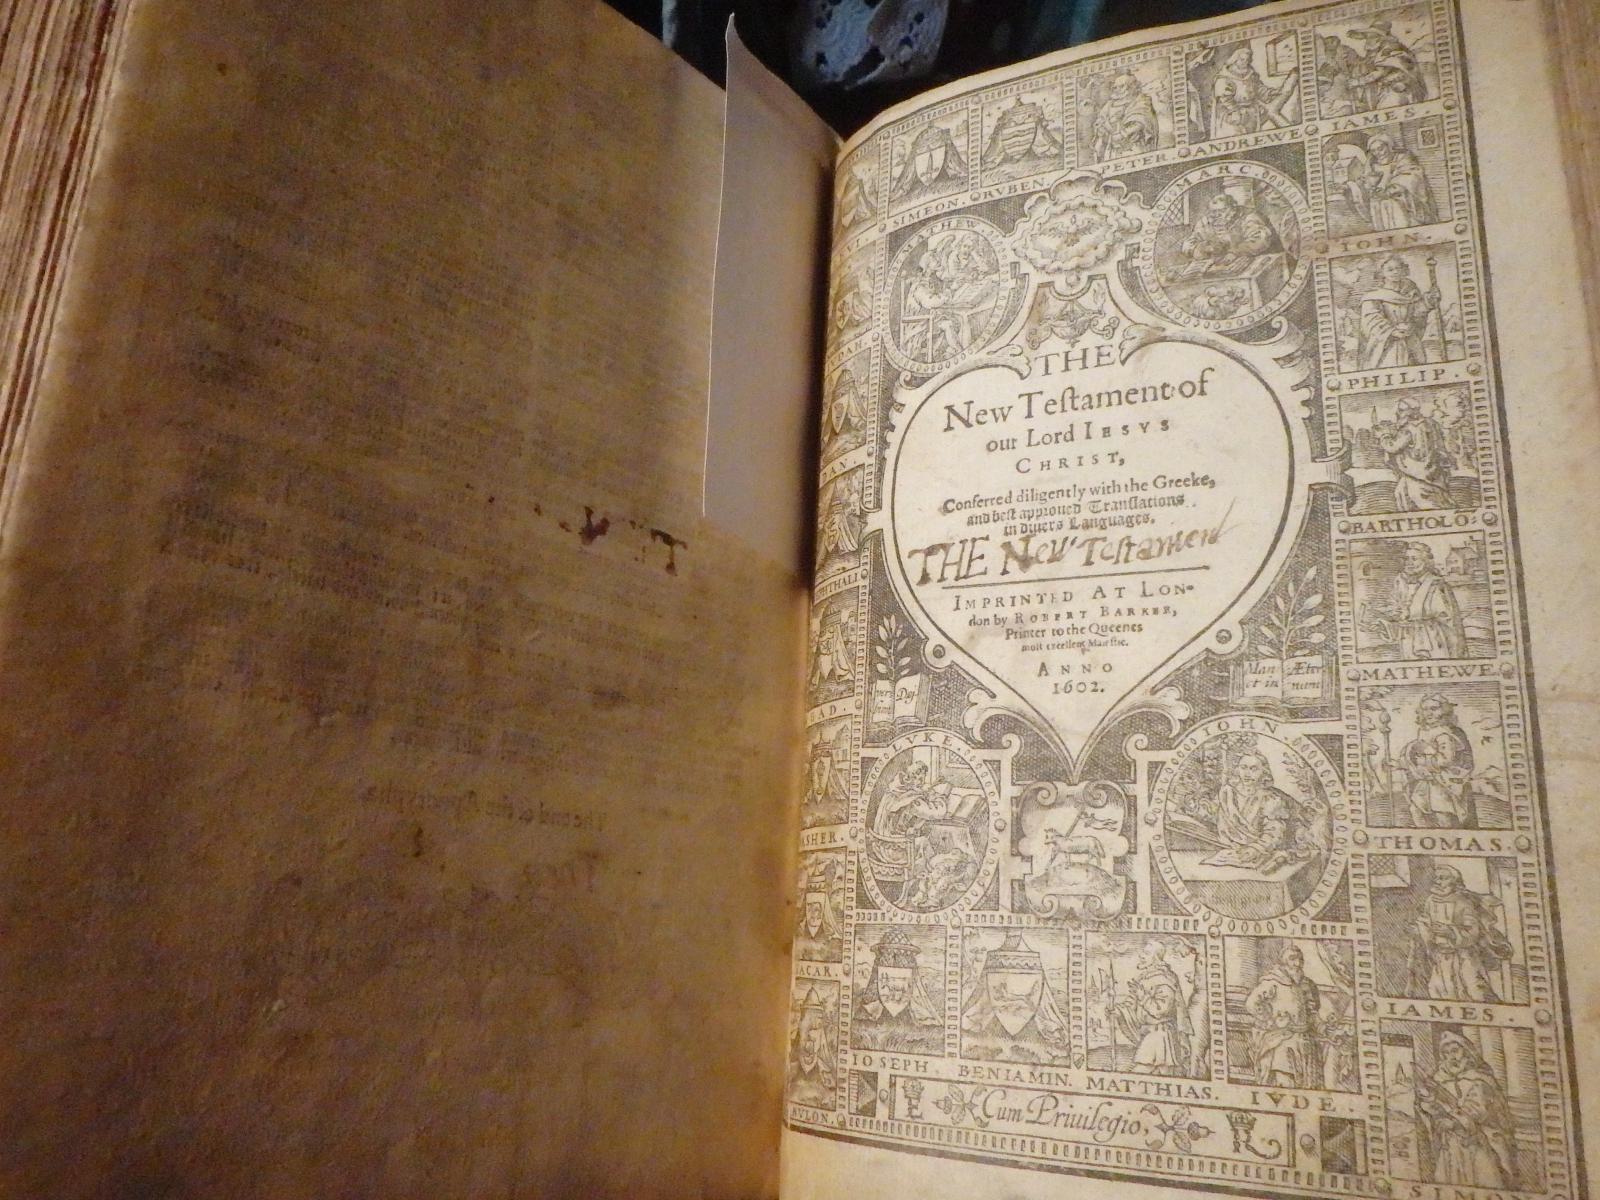 SIMEON. RVBEN. PETER. ANDREWE IAMES
MARC.
IOHN.
PHILIP.
BARTHOLO:
MATHEWE
THOMAS.
IAMES.
THE
New Teſtament of
our Lord IESVS
CHRIST,
Conferred diligently with the Greeke,
and beſt approued Tranſlations
in diuers Languages.
THE New Teſtament
IMPRINTED AT LON-
don by ROBERT BARKER,
Printer to the Queenes
moſt excellent Maieſtie.
ANNO
1602.
Man Æter
et in num
LVKE.
IOHN
GAD.
ASHER.
IOSEPH. BENIAMIN. MATTHIAS. IVDE.
Cum Priuilegio,
E
R
The end of the Apocrypha.